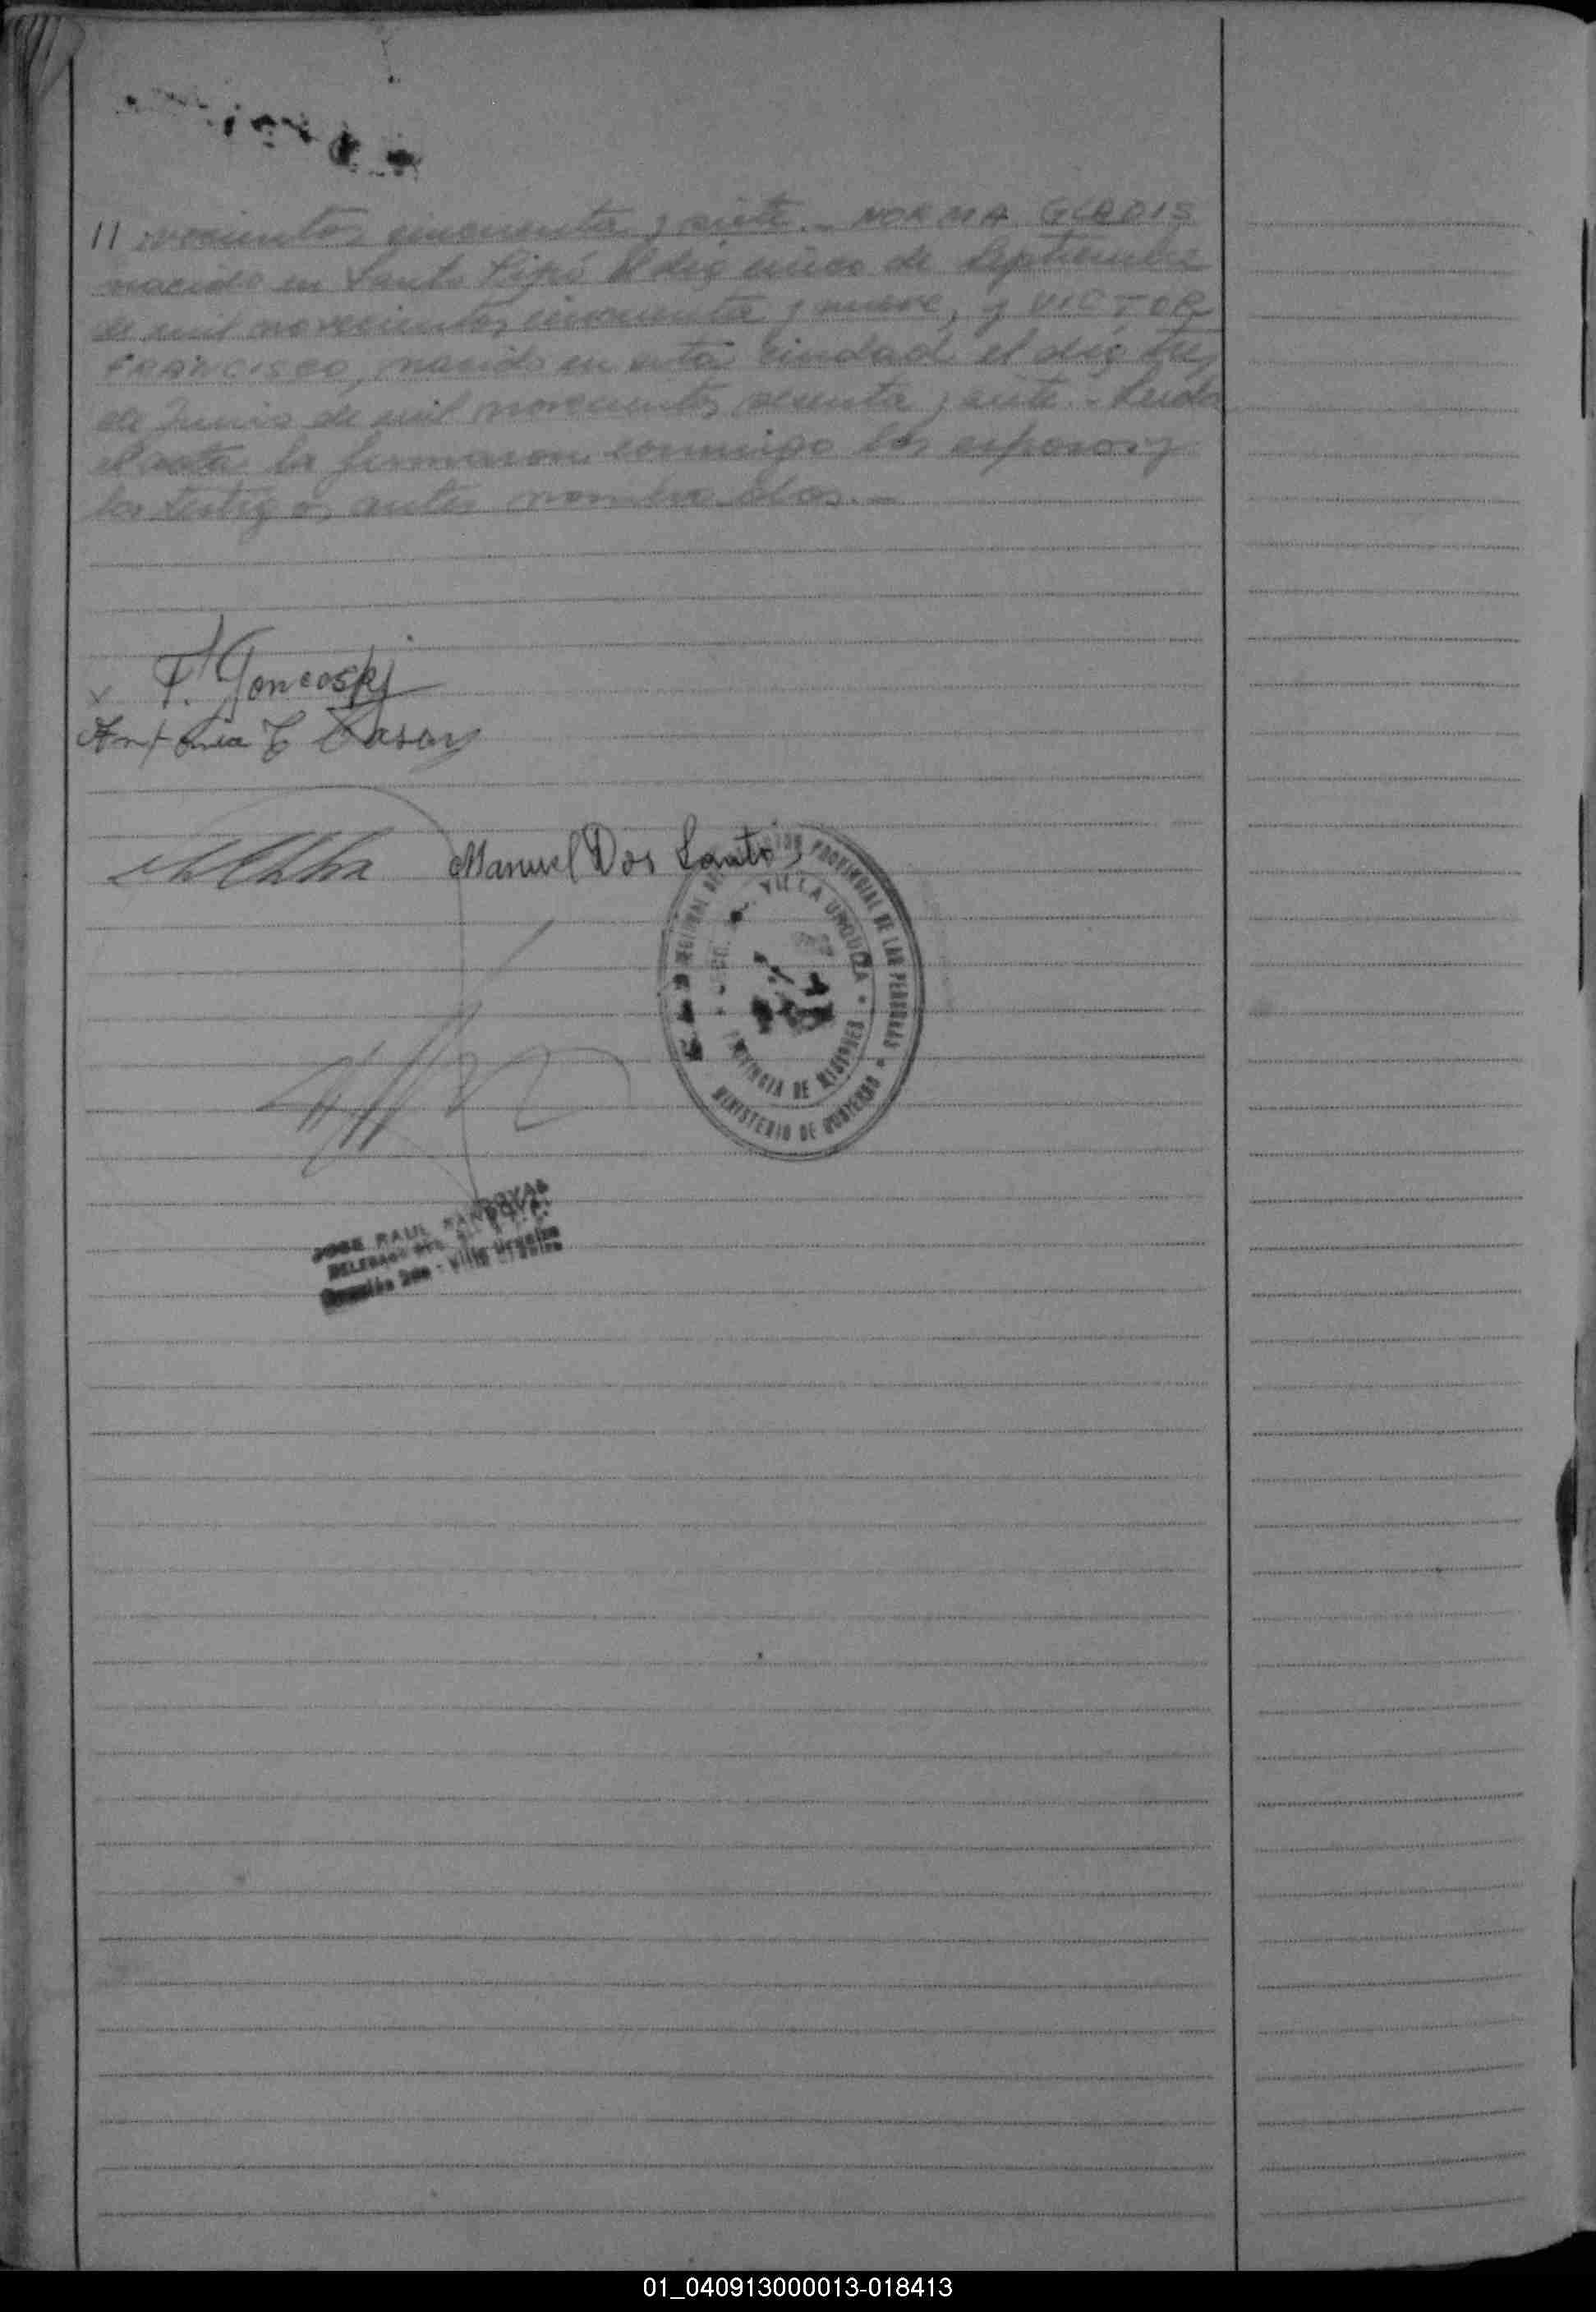 // vecientos cincuenta y siete.- NORMA GLADIS
nacida en Santo Pipó el día cinco de Septiembre
de mil novecientos cincuenta y nueve, y VICTOR
FRANCISCO, nacido en esta ciudad el día tres
de Junio de mil novecientos sesenta y siete.- Leída
el acta la firmaron conmigo los esposos y
los testigos antes nombrados.-
F. Goncoski
Manuel Dos Santos
PROVINCIAL DE LAS PERSONAS
VILLA URQUIZA
PROVINCIA DE MISIONES
MINISTERIO DE GOBIERNO
JOSE RAUL SANDOVAL
Villa Urquiza
01_040913000013-018413